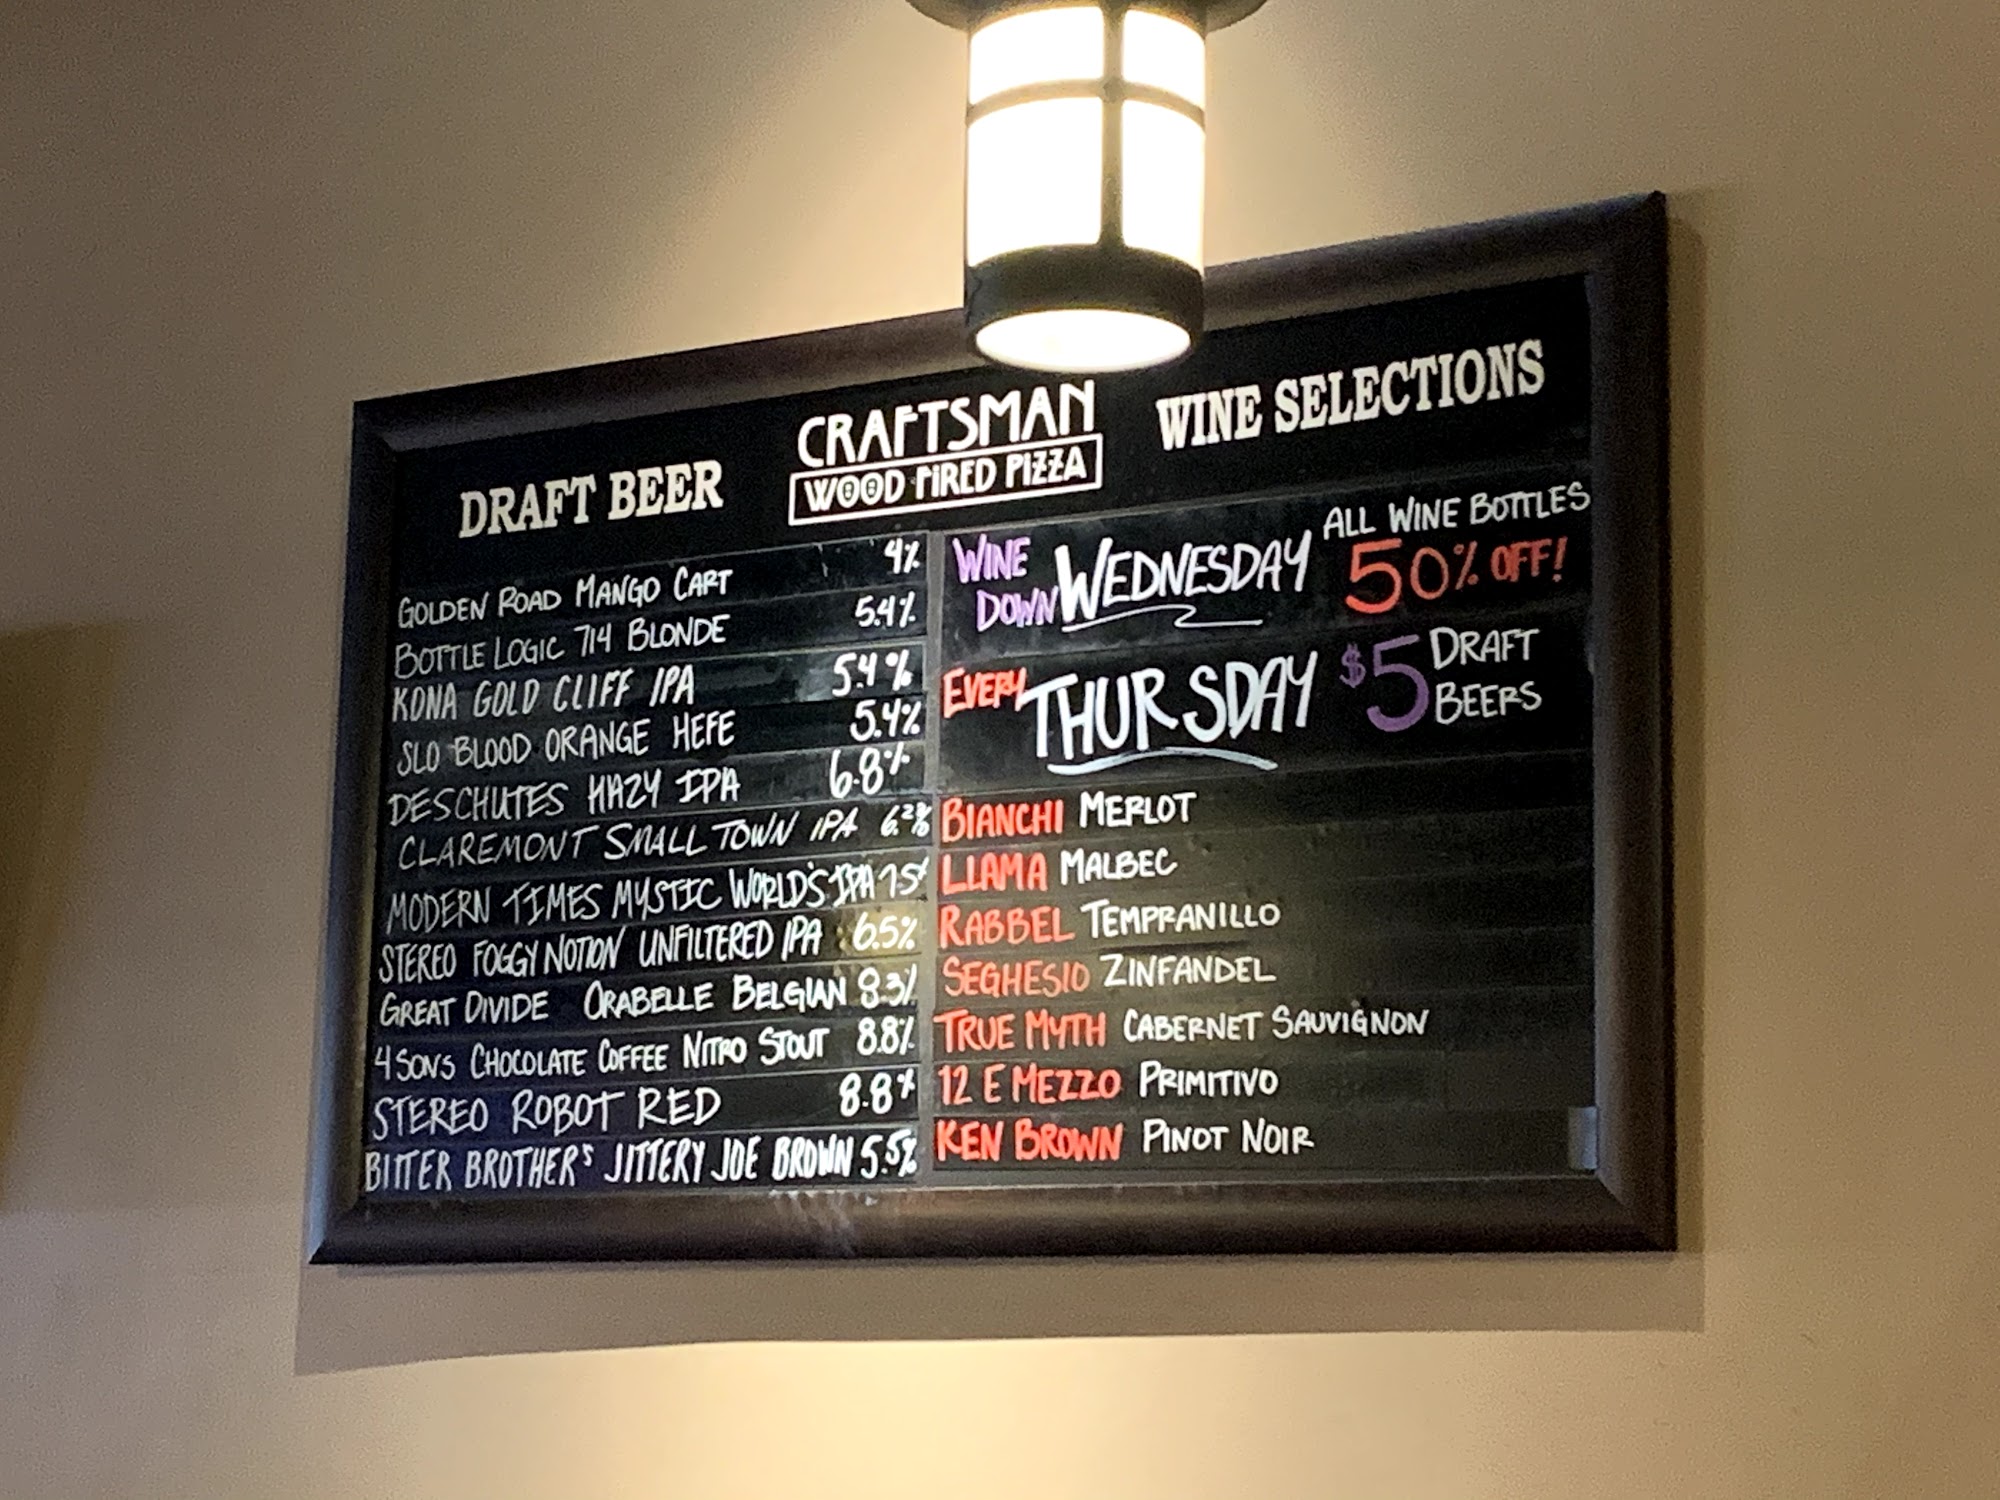 CRAFTSMAN
WOOD FIRED PIZZA
DRAFT BEER
GOLDEN ROAD MANGO CART 4%
BOTTLE LOGIC 714 BLONDE 5.4%
KONA GOLD CLIFF IPA 5.4%
SLO BLOOD ORANGE HEFE 5.4%
DESCHUTES HAZY IPA 6.8%
CLAREMONT SMALL TOWN IPA 6.2%
MODERN TIMES MYSTIC WORLD'S IPA 7.5%
STEREO FOGGY NOTION UNFILTERED IPA 6.5%
GREAT DIVIDE ORABELLE BELGIAN 8.3%
4 SONS CHOCOLATE COFFEE NITRO STOUT 8.8%
STEREO ROBOT RED 8.8%
BITTER BROTHER'S JITTERY JOE BROWN 5.5%
WINE SELECTIONS
WINE DOWN WEDNESDAY ALL WINE BOTTLES
50% OFF!
EVERY THURSDAY $5 DRAFT
BEERS
BIANCHI MERLOT
LLAMA MALBEC
RABBEL TEMPRANILLO
SEGHESIO ZINFANDEL
TRUE MYTH CABERNET SAUVIGNON
12 E MEZZO PRIMITIVO
KEN BROWN PINOT NOIR